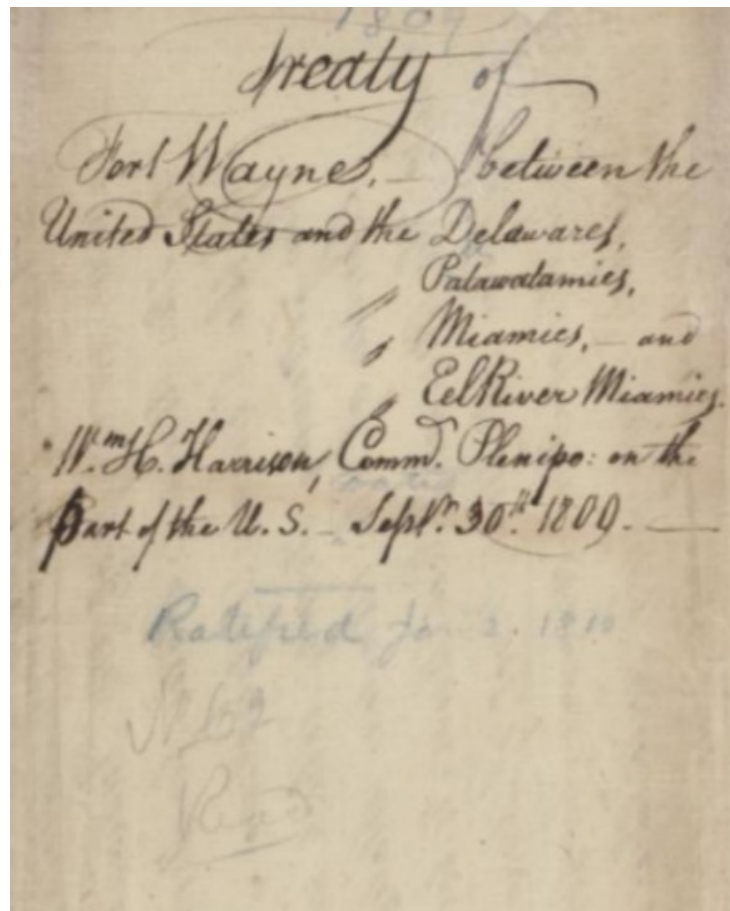 1809
Treaty of
Fort Wayne, — between the
United States and the Delawares,
Patawatamies,
" Miamies, — and
" Eel River Miamies.
Wm. H. Harrison, Commr. Plenipo: on the
part of the U. S. — Septr. 30th. 1809. —
Ratified Jan 2. 1810